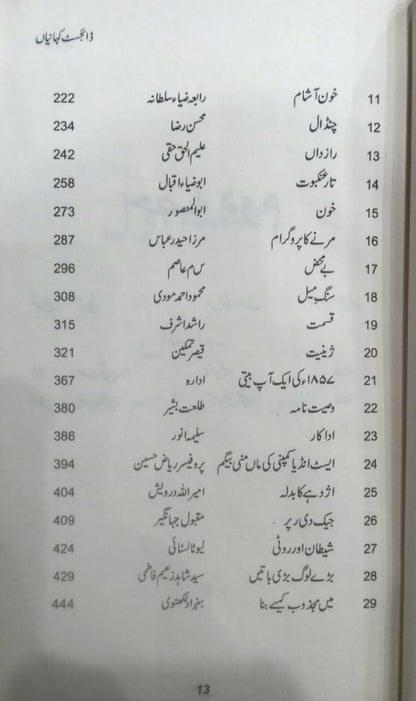 ڈائجسٹ کہانیاں
11 خون آشام رابعہ ضیاء سلطانہ 222
12 چنڈال محسن رضا 234
13 راز داں علیم الحق حقی 242
14 تار عنکبوت ابو ضیاء اقبال 258
15 خون ابوالمنصور 273
16 مرنے کا پروگرام مرزا حیدر عباس 287
17 بے محض س م عاصم 296
18 سنگِ میل محمود احمد مودی 308
19 قسمت راشد اشرف 315
20 ژینیت قیصر تمکین 321
21 ۱۸۵۷ء کی ایک آپ بیتی ادارہ 367
22 وصیت نامہ طلعت بشیر 380
23 اداکار سلیمہ انور 386
24 ایسٹ انڈیا کمپنی کی ماں منی بیگم پروفیسر ریاض حسین 394
25 اژدہے کا بدلہ امیر اللہ درویش 404
26 جیک دی رپر مقبول جہانگیر 409
27 شیطان اور روٹی لیو ٹالسٹائی 424
28 بڑے لوگ بڑی باتیں سید شاہد زعیم فاطمی 429
29 میں مجذوب کیسے بنا بہزاد لکھنوی 444
13